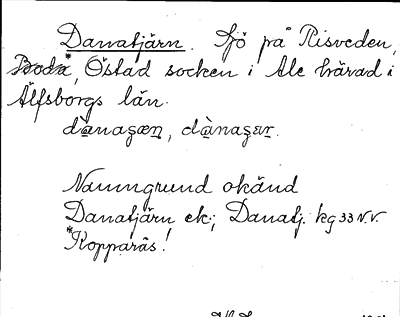 Danatjärn. Sjö på Risveden,
Boda*, Östad socken i Ale härad i
Älfsborgs län.
Namngrund okänd
Danatjärn ek.; Danatj. kg 33 N.V.
*Kopparås!